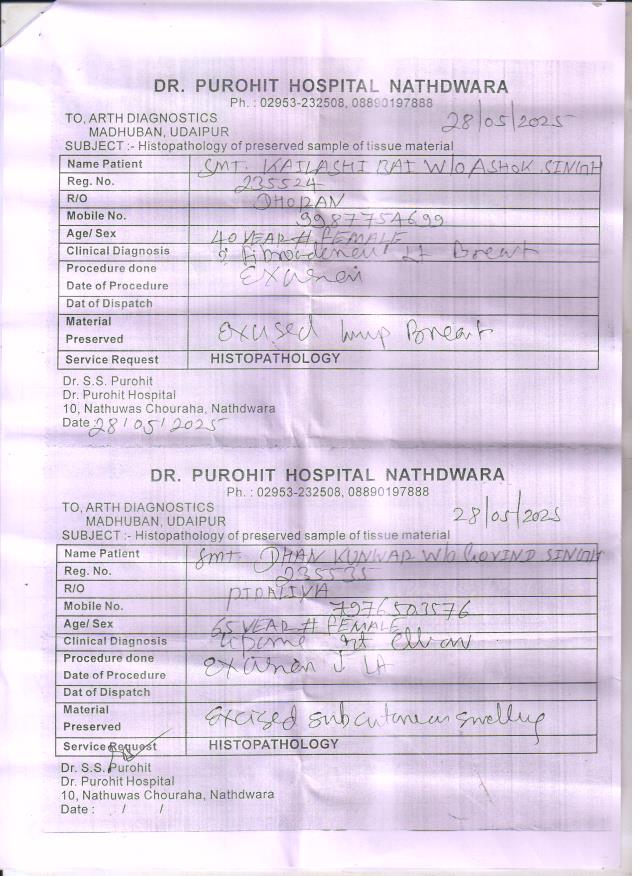 DR. PUROHIT HOSPITAL NATHDWARA
Ph. : 02953-232508, 08890197888
TO, ARTH DIAGNOSTICS 28/05/2025
MADHUBAN, UDAIPUR
SUBJECT :- Histopathology of preserved sample of tissue material
Name Patient SMT. KAILASHI BAI W/O ASHOK SINGH
Reg. No. 235524
R/O
Mobile No. 9987754699
Age/ Sex 40 YEAR # FEMALE
Clinical Diagnosis ? Fibroadenoma Lt Breast
Procedure done Excision
Date of Procedure
Dat of Dispatch
Material
Preserved Excised lump Breast
Service Request HISTOPATHOLOGY
Dr. S.S. Purohit
Dr. Purohit Hospital
10, Nathuwas Chouraha, Nathdwara
Date 28/05/2025
DR. PUROHIT HOSPITAL NATHDWARA
Ph. : 02953-232508, 08890197888
TO, ARTH DIAGNOSTICS 28/05/2025
MADHUBAN, UDAIPUR
SUBJECT :- Histopathology of preserved sample of tissue material
Name Patient SMT. DHAN KUNWAR W/o GOVIND SINGH
Reg. No. 235535
R/O
Mobile No. 7976503576
Age/ Sex 65 YEAR # FEMALE
Clinical Diagnosis Lipoma
Procedure done Excision
Date of Procedure
Dat of Dispatch
Material
Preserved Excised subcutaneous swelling
Service Request HISTOPATHOLOGY
Dr. S.S. Purohit
Dr. Purohit Hospital
10, Nathuwas Chouraha, Nathdwara
Date : / /